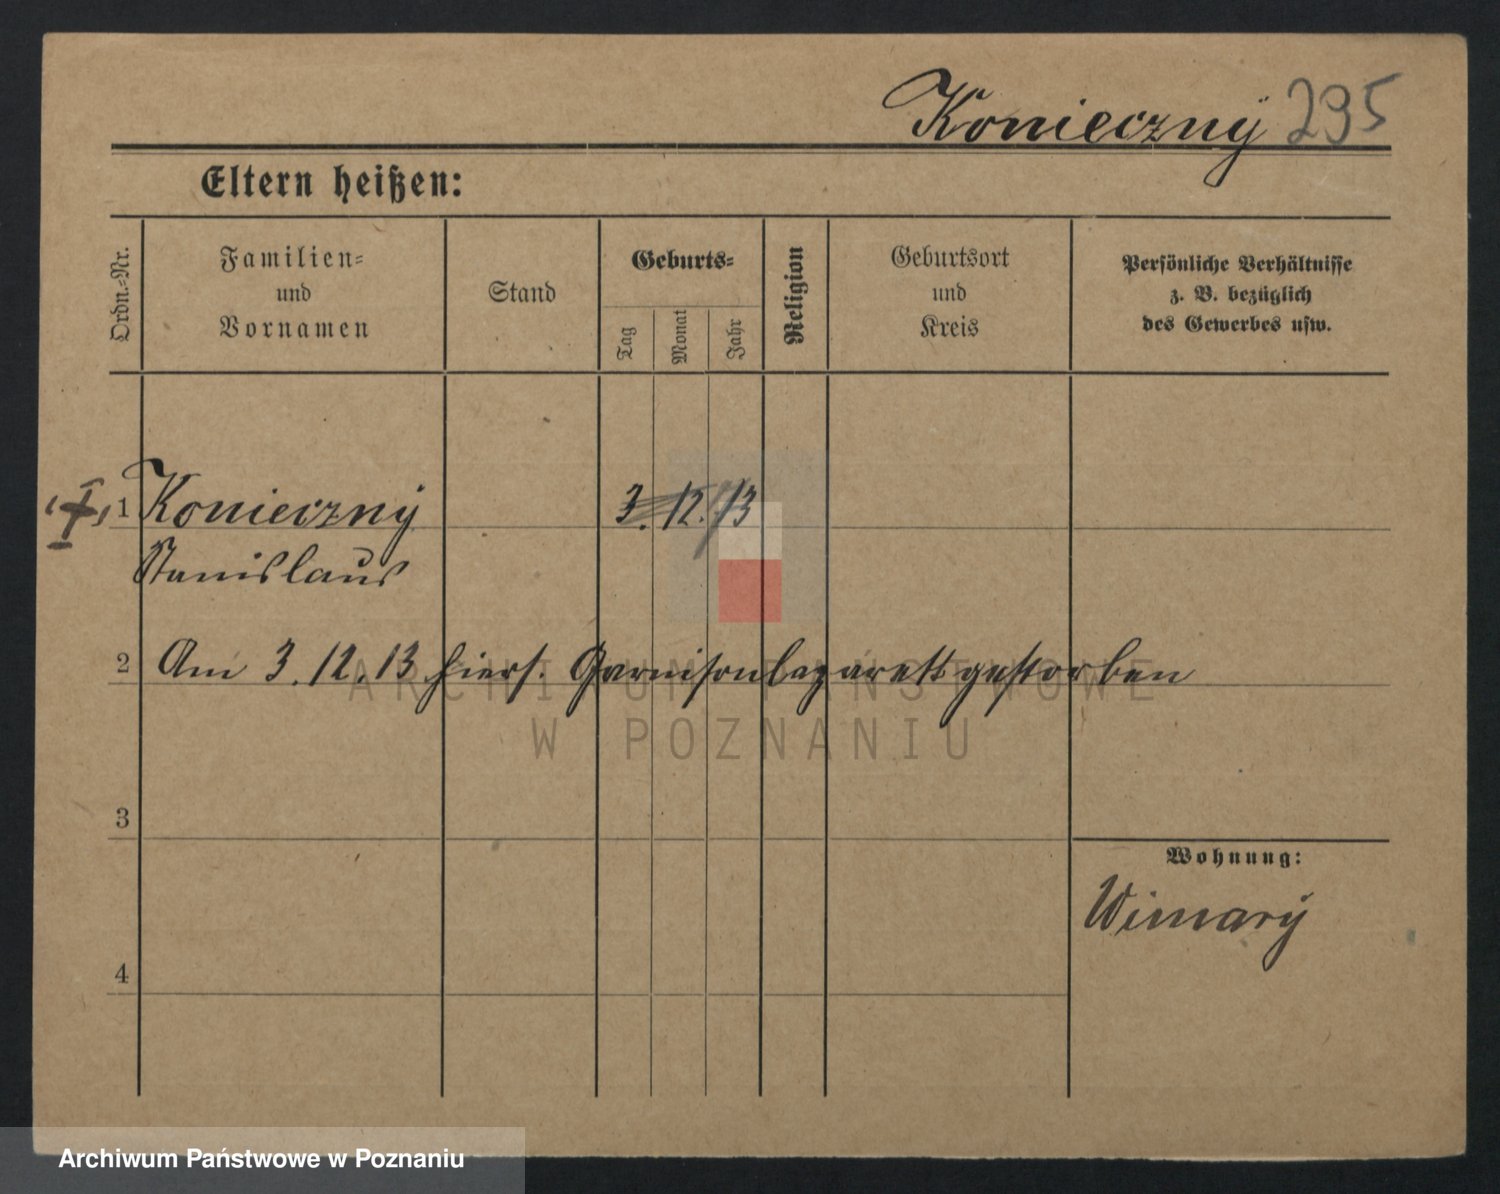 Konieczny 295
Eltern heißen:
Ordn.-Nr.
Familien-
und
Vornamen
Stand
Geburts-
Tag
Monat
Jahr
Religion
Geburtsort
und
Kreis
Persönliche Verhältnisse
z. B. bezüglich
des Gewerbes usw.
1 Konieczny 3. 12. 13
Stanislaus
2 Am 3. 12. 13 hiers. Garnisonlazarett gestorben
ARCHIWUM PAŃSTWOWE
W POZNANIU
3
Wohnung:
Winiary
4
Archiwum Państwowe w Poznaniu